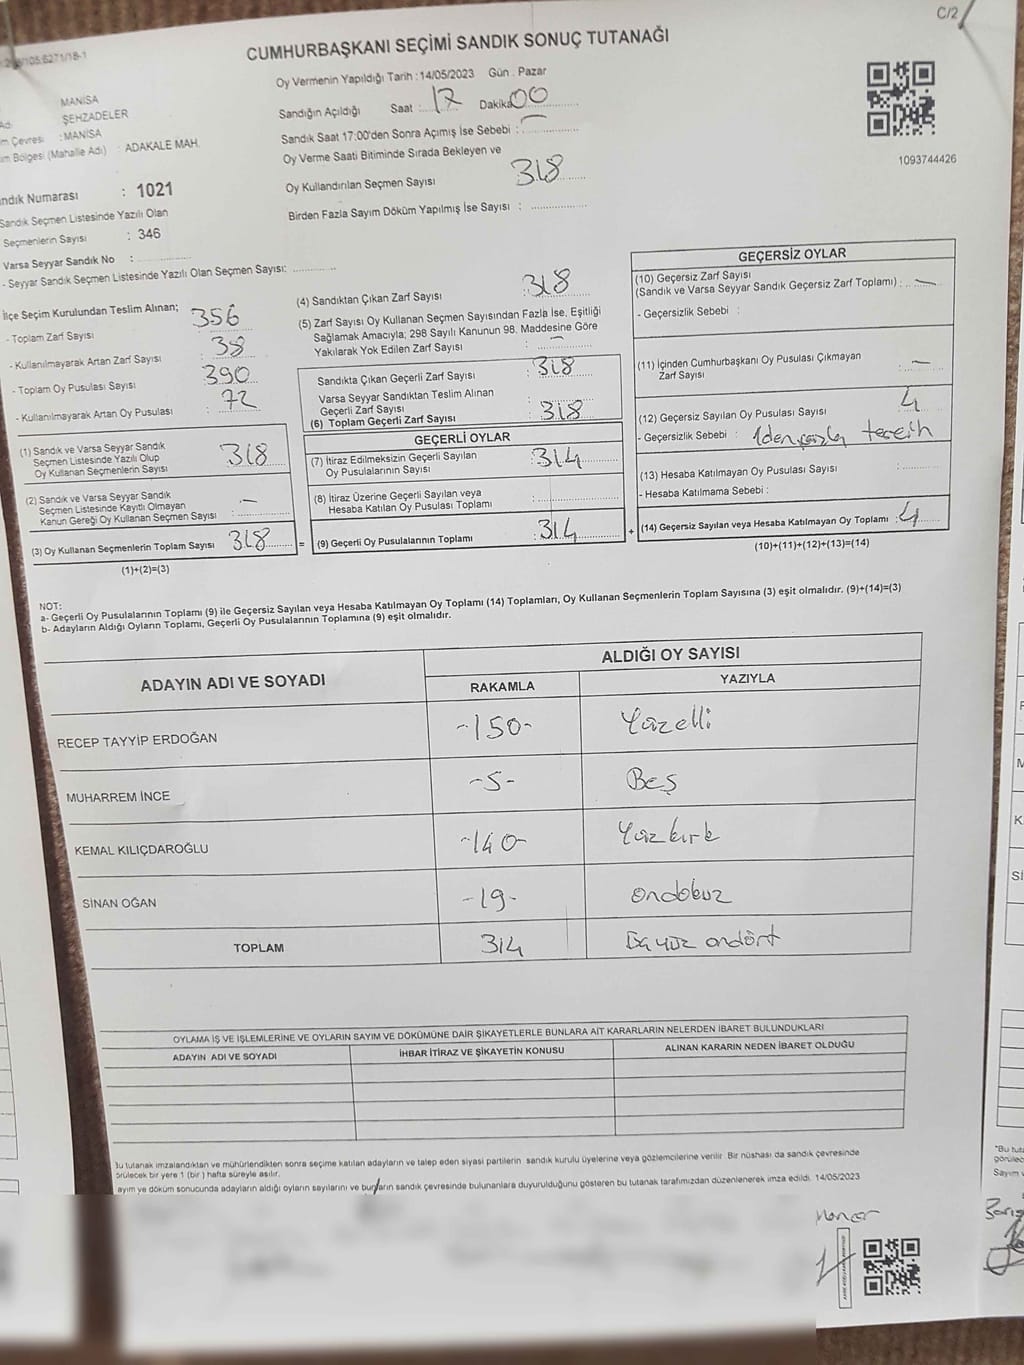 C/2
CUMHURBAŞKANI SEÇİMİ SANDIK SONUÇ TUTANAĞI
MANİSA
ŞEHZADELER
: MANİSA
(Mahalle Adı) : ADAKALE MAH.
Numarası : 1021
Sandık Seçmen Listesinde Yazılı Olan
Seçmenlerin Sayısı : 346
Varsa Seyyar Sandık No :
- Seyyar Sandık Seçmen Listesinde Yazılı Olan Seçmen Sayısı:
Oy Vermenin Yapıldığı Tarih : 14/05/2023 Gün . Pazar
Sandığın Açıldığı Saat : 17 Dakika 00
Sandık Saat 17:00'den Sonra Açımış İse Sebebi : —
Oy Verme Saati Bitiminde Sırada Bekleyen ve
Oy Kullandırılan Seçmen Sayısı 318
Birden Fazla Sayım Döküm Yapılmış İse Sayısı :
1093744426
İlçe Seçim Kurulundan Teslim Alınan;
- Toplam Zarf Sayısı 356
- Kullanılmayarak Artan Zarf Sayısı 38
- Toplam Oy Pusulası Sayısı 390
- Kullanılmayarak Artan Oy Pusulası : 72
(1) Sandık ve Varsa Seyyar Sandık
Seçmen Listesinde Yazılı Olup
Oy Kullanan Seçmenlerin Sayısı 318
(2) Sandık ve Varsa Seyyar Sandık
Seçmen Listesinde Kayıtlı Olmayan
Kanun Gereği Oy Kullanan Seçmen Sayısı : —
(3) Oy Kullanan Seçmenlerin Toplam Sayısı 318 =
(1)+(2)=(3)
(4) Sandıktan Çıkan Zarf Sayısı : 318
(5) Zarf Sayısı Oy Kullanan Seçmen Sayısından Fazla İse, Eşitliği
Sağlamak Amacıyla; 298 Sayılı Kanunun 98. Maddesine Göre
Yakılarak Yok Edilen Zarf Sayısı : —
Sandıkta Çıkan Geçerli Zarf Sayısı : 318
Varsa Seyyar Sandıktan Teslim Alınan
Geçerli Zarf Sayısı :
(6) Toplam Geçerli Zarf Sayısı : 318
GEÇERLİ OYLAR
(7) İtiraz Edilmeksizin Geçerli Sayılan
Oy Pusulalarının Sayısı : 314
(8) İtiraz Üzerine Geçerli Sayılan veya
Hesaba Katılan Oy Pusulası Toplamı :
(9) Geçerli Oy Pusulalarının Toplamı : 314 +
GEÇERSİZ OYLAR
(10) Geçersiz Zarf Sayısı
(Sandık ve Varsa Seyyar Sandık Geçersiz Zarf Toplamı) : —
- Geçersizlik Sebebi :
(11) İçinden Cumhurbaşkanı Oy Pusulası Çıkmayan
Zarf Sayısı : —
(12) Geçersiz Sayılan Oy Pusulası Sayısı 4
- Geçersizlik Sebebi : 1den fazla tercih
(13) Hesaba Katılmayan Oy Pusulası Sayısı :
- Hesaba Katılmama Sebebi :
(14) Geçersiz Sayılan veya Hesaba Katılmayan Oy Toplamı : 4
(10)+(11)+(12)+(13)=(14)
NOT:
a- Geçerli Oy Pusulalarının Toplamı (9) ile Geçersiz Sayılan veya Hesaba Katılmayan Oy Toplamı (14) Toplamları, Oy Kullanan Seçmenlerin Toplam Sayısına (3) eşit olmalıdır. (9)+(14)=(3)
b- Adayların Aldığı Oyların Toplamı, Geçerli Oy Pusulalarının Toplamına (9) eşit olmalıdır.
ADAYIN ADI VE SOYADI ALDIĞI OY SAYISI
RAKAMLA YAZIYLA
RECEP TAYYİP ERDOĞAN -150- Yüzelli
MUHARREM İNCE -5- Beş
KEMAL KILIÇDAROĞLU -140- Yüzkırk
SİNAN OĞAN -19- ondokuz
TOPLAM 314 Üçyüz ondört
OYLAMA İŞ VE İŞLEMLERİNE VE OYLARIN SAYIM VE DÖKÜMÜNE DAİR ŞİKAYETLERLE BUNLARA AİT KARARLARIN NELERDEN İBARET BULUNDUKLARI
ADAYIN ADI VE SOYADI İHBAR İTİRAZ VE ŞİKAYETİN KONUSU ALINAN KARARIN NEDEN İBARET OLDUĞU
Bu tutanak imzalandıktan ve mühürlendikten sonra seçime katılan adayların ve talep eden siyasi partilerin sandık kurulu üyelerine veya gözlemcilerine verilir. Bir nüshası da sandık çevresinde
görülecek bir yere 1 (bir) hafta süreyle asılır.
Sayım ve döküm sonucunda adayların aldığı oyların sayılarını ve bunların sandık çevresinde bulunanlara duyurulduğunu gösteren bu tutanak tarafımızdan düzenlenerek imza edildi. 14/05/2023